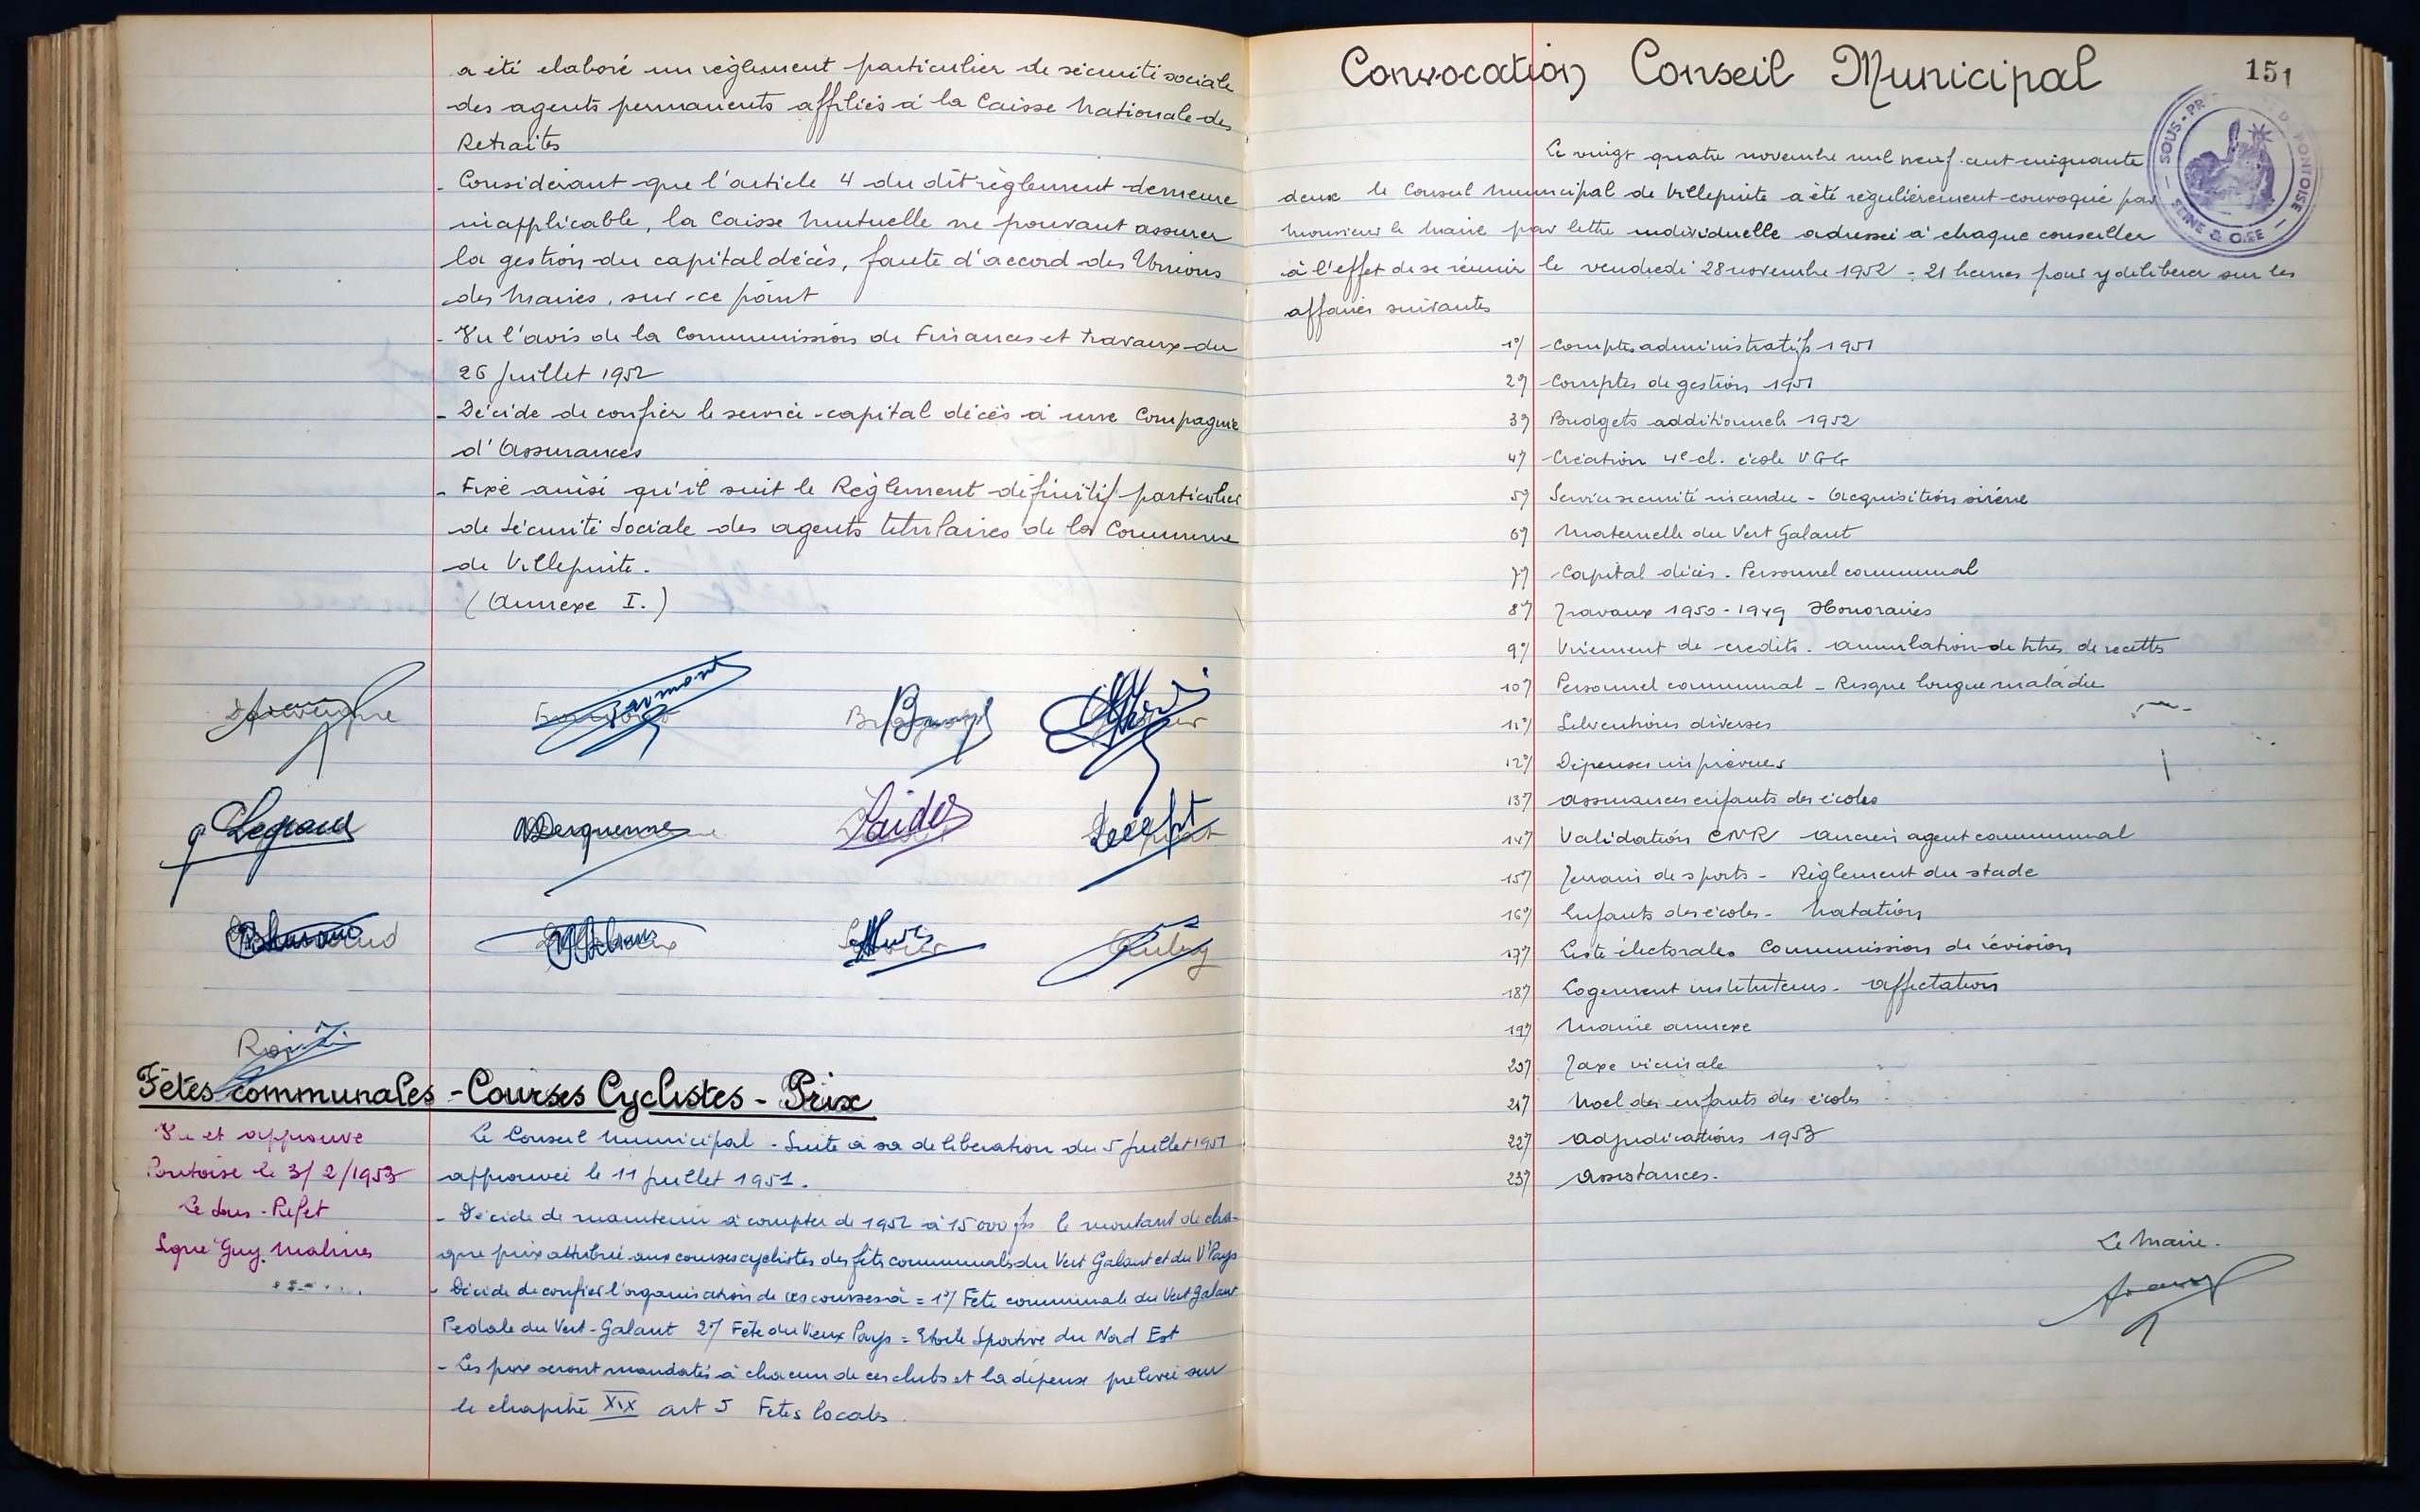 a été elaboré un règlement particulier de sécurité sociale
des agents permanents affiliés à la Caisse Nationale des
Retraites
- Considérant que l'article 4 du dit règlement demeure
inapplicable, la Caisse Mutuelle ne pouvant assurer
la gestion du capital décès, faute d'accord des Unions
des Maires, sur ce point
- Vu l'avis de la Commission de Finances et travaux du
26 Juillet 1952
- Décide de confier le service capital décès à une Compagnie
d'Assurances
- Fixe ainsi qu'il suit le Règlement définitif particulier
de Sécurité Sociale des agents titulaires de la Commune
de Villepinte.
(Annexe I.)
Legrand
Derquenne
Fêtes communales - Courses Cyclistes - Prix
Vu et approuvé
Pontoise le 3/2/1953
Le Sous-Préfet
Signé Guy Malines
Le Conseil Municipal - Suite à sa délibération du 5 Juillet 1951
approuvée le 11 Juillet 1951.
- Décide de maintenir à compter de 1952 à 15 000 frs le montant de cha-
que prix attribué aux courses cyclistes des fêtes communales du Vert Galant et du Vx Pays
- Décide de confier l'organisation de ces courses à = 1°/ Fête communale du Vert Galant
Pédale du Vert-Galant 2°/ Fête du Vieux Pays = Etoile Sportive du Nord Est
- Les prix seront mandatés à chacun de ces clubs et la dépense prélevée sur
le chapitre XIX art 5 Fêtes locales.
Convocation Conseil Municipal
151
SOUS-PRÉ D PONTOISE
SEINE & OISE
Le vingt quatre novembre mil neuf cent cinquante
deux le Conseil Municipal de Villepinte a été régulièrement convoqué par
Monsieur le Maire par lettre individuelle adressée à chaque conseiller
à l'effet de se réunir le vendredi 28 novembre 1952 - 21 heures pour y délibérer sur les
affaires suivantes
1°/ Comptes administratifs 1951
2°/ Comptes de gestion 1951
3°/ Budgets additionnels 1952
4°/ Création 4e cl. école VGG
5°/ Service sécurité incendie - Acquisition sirène
6°/ Maternelle du Vert Galant
7°/ Capital décès. Personnel communal
8°/ Travaux 1950-1949 Honoraires
9°/ Virement de crédits. annulation de titres de recettes
10°/ Personnel communal - Risque longue maladie
11°/ Subventions diverses
12°/ Dépenses imprévues
13°/ Assurances enfants des écoles
14°/ Validation CNR ancien agent communal
15°/ Terrains de sports - Règlement du stade
16°/ Enfants des écoles - Natation
17°/ Liste électorales Commission de révision
18°/ Logement instituteurs - affectation
19°/ Mairie annexe
20°/ Taxe vicinale
21°/ Noël des enfants des écoles
22°/ Adjudications 1953
23°/ Assistances.
Le Maire.